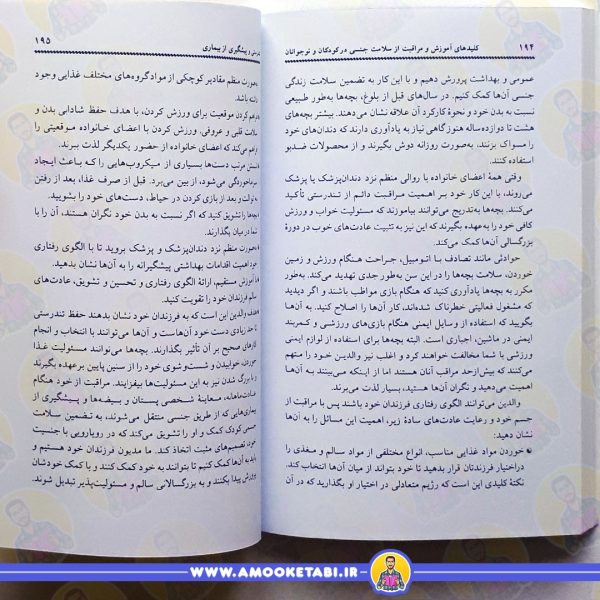 ۱۹۴ کلیدهای آموزش و مراقبت از سلامت جنسی در کودکان و نوجوانان
عمومی و بهداشت پرورش دهیم و با این کار به تضمین سلامت زندگی
جنسی آن‌ها کمک کنیم. در سال‌های قبل از بلوغ، بچه‌ها به‌طور طبیعی
نسبت به بدن خود و نحوهٔ کارکرد آن علاقه نشان می‌دهند. بیشتر بچه‌های
هشت تا دوازده‌ساله هنوز گاهی نیاز به یادآوری دارند که دندان‌های خود
را مسواک بزنند، به‌صورت روزانه دوش بگیرند و از محصولات ضدبو
استفاده کنند.
وقتی همهٔ اعضای خانواده با روالی منظم نزد دندان‌پزشک یا پزشک
می‌روند، با این کار خود بر اهمیت مراقبت دائم از تندرستی تأکید
می‌کنند. بچه‌ها به‌تدریج می‌توانند بیاموزند که مسئولیت خواب و ورزش
کافی خود را به‌عهده بگیرند که این نیز به تثبیت عادت‌های خوب در دورهٔ
بزرگسالی آن‌ها کمک می‌کند.
حوادثی مانند تصادف با اتومبیل، جراحت هنگام ورزش و زمین
خوردن، سلامت بچه‌ها را در این سن به‌طور جدی تهدید می‌کند. به‌طور
مکرر به بچه‌ها یادآوری کنید که هنگام بازی مواظب باشند و اگر دیدید
که مشغول فعالیتی خطرناک شده‌اند، کار آن‌ها را اصلاح کنید. به آن‌ها
بگویید که استفاده از وسایل ایمنی هنگام بازی‌های ورزشی و کمربند
ایمنی در ماشین، اجباری است. البته بچه‌ها برای استفاده از لوازم ایمنی
ورزشی با شما مخالفت خواهند کرد و اغلب نیز والدین خود را متهم
می‌کنند که بیش‌ازحد مراقب آنان هستند اما از اینکه می‌بینند به آن‌ها
اهمیت می‌دهید و نگران آن‌ها هستید، بسیار لذت می‌برند.
والدین می‌توانند الگوی رفتاری فرزندان خود باشند پس با مراقبت از
جسم خود و رعایت عادت‌های سادهٔ زیر، اهمیت این مسائل را به آن‌ها
نشان دهید:
• خوردن مواد غذایی مناسب، انواع مختلفی از مواد سالم و مغذی را
در اختیار فرزندتان قرار بدهید تا خود بتواند از میان آن‌ها انتخاب کند.
نکتهٔ کلیدی این است که رژیم متعادلی در اختیار او بگذارید که در آن
و پیشگیری از بیماری ۱۹۵
به‌صورت منظم مقادیر کوچکی از مواد گروه‌های مختلف غذایی وجود
داشته باشد.
فراهم کردن موقعیت برای ورزش کردن، با هدف حفظ شادابی بدن و
سلامت قلبی و عروقی. ورزش کردن با اعضای خانواده موقعیتی را
فراهم می‌کند تا اعضای خانواده از حضور یکدیگر لذت ببرند.
شستن مرتب دست‌ها بسیاری از میکروب‌هایی را که باعث ایجاد
سرماخوردگی می‌شود، از بین می‌برد. قبل از صرف غذا، بعد از رفتن
به توالت و بعد از بازی کردن در حیاط، دست‌های خود را بشویید.
بچه‌ها را تشویق کنید که اگر نسبت به بدن خود نگران هستند، آن را با
شما در میان بگذارند.
به‌صورت منظم نزد دندان‌پزشک و پزشک بروید تا با الگوی رفتاری
خود اهمیت اقدامات بهداشتی پیشگیرانه را به آن‌ها نشان بدهید.
با آموزش مستقیم، ارائهٔ الگوی رفتاری و تحسین و تشویق، عادت‌های
سالم فرزندان خود را تقویت کنید.
هدف والدین این است که به فرزندان خود نشان بدهند حفظ تندرستی
تا حد زیادی دست خود آن‌هاست و آن‌ها می‌توانند با انتخاب و انجام
کارهای صحیح بر آن تأثیر بگذارند. بچه‌ها می‌توانند مسئولیت غذا
خوردن، خوابیدن و شست‌وشوی خود را از سنین پایین برعهده بگیرند
و با بزرگ شدن نیز به این مسئولیت‌ها بیفزایند. مراقبت از خود هنگام
عادت‌ماهانه، معاینهٔ شخصی پستان و بیضه‌ها و پیشگیری از
بیماری‌هایی که از طریق جنسی منتقل می‌شوند، به تضمین سلامت
جسمی کودک کمک و او را تشویق می‌کند که در رویارویی با جنسیت
خود، تصمیم‌های مثبت اتخاذ کند. ما مدیون فرزندان خود هستیم و
باید به آن‌ها کمک کنیم تا بتوانند به خود کمک کنند و با کمک خودشان
پرورش پیدا بکنند و به بزرگسالانی سالم و مسئولیت‌پذیر تبدیل شوند.
WWW.AMOOKETABI.IR